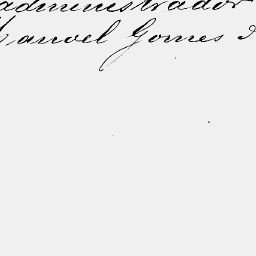 administrador
Manoel Gomes d